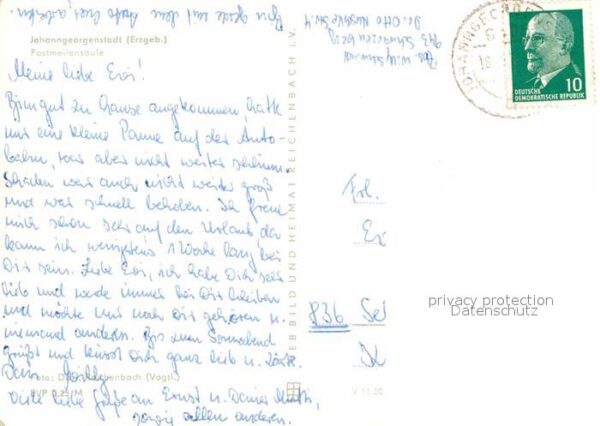 Bin gerade mit dem Auto hier,
Johanngeorgenstadt (Erzgeb.)
Postmeilensäule
Meine liebe Evi!
Bin gut zu Hause angekommen, hatte
nur eine kleine Panne auf der Auto-
bahn, war aber nicht weiter schlimm.
Schaden war auch nicht weiter groß
und war schnell behoben. Ich freue
mich schon sehr auf den Urlaub, da
kann ich wenigstens 1 Woche lang bei
Dir sein. Liebe Evi, ich habe Dich sehr
lieb und werde immer bei Dir bleiben
und möchte nur noch Dir gehören u.
niemand anderen. Bis zum Sonnabend
grüßt und küsst Dich ganz lieb u.
Dein Willy
Foto: Reichenbach (Vogtl.)
EVP 0,25 M
Viele liebe Grüße an Ernst u. Deiner Mutti,
sowie allen anderen.
VEB BILD UND HEIMAT REICHENBACH i. V.
V 11 50
Abs. Willy
943 Schwarzenberg
Dr. Otto Nuschke Str. 4
JOHANNGEORGEN
DEUTSCHE
DEMOKRATISCHE REPUBLIK
10
Frl.
836 Se
privacy protection
Datenschutz